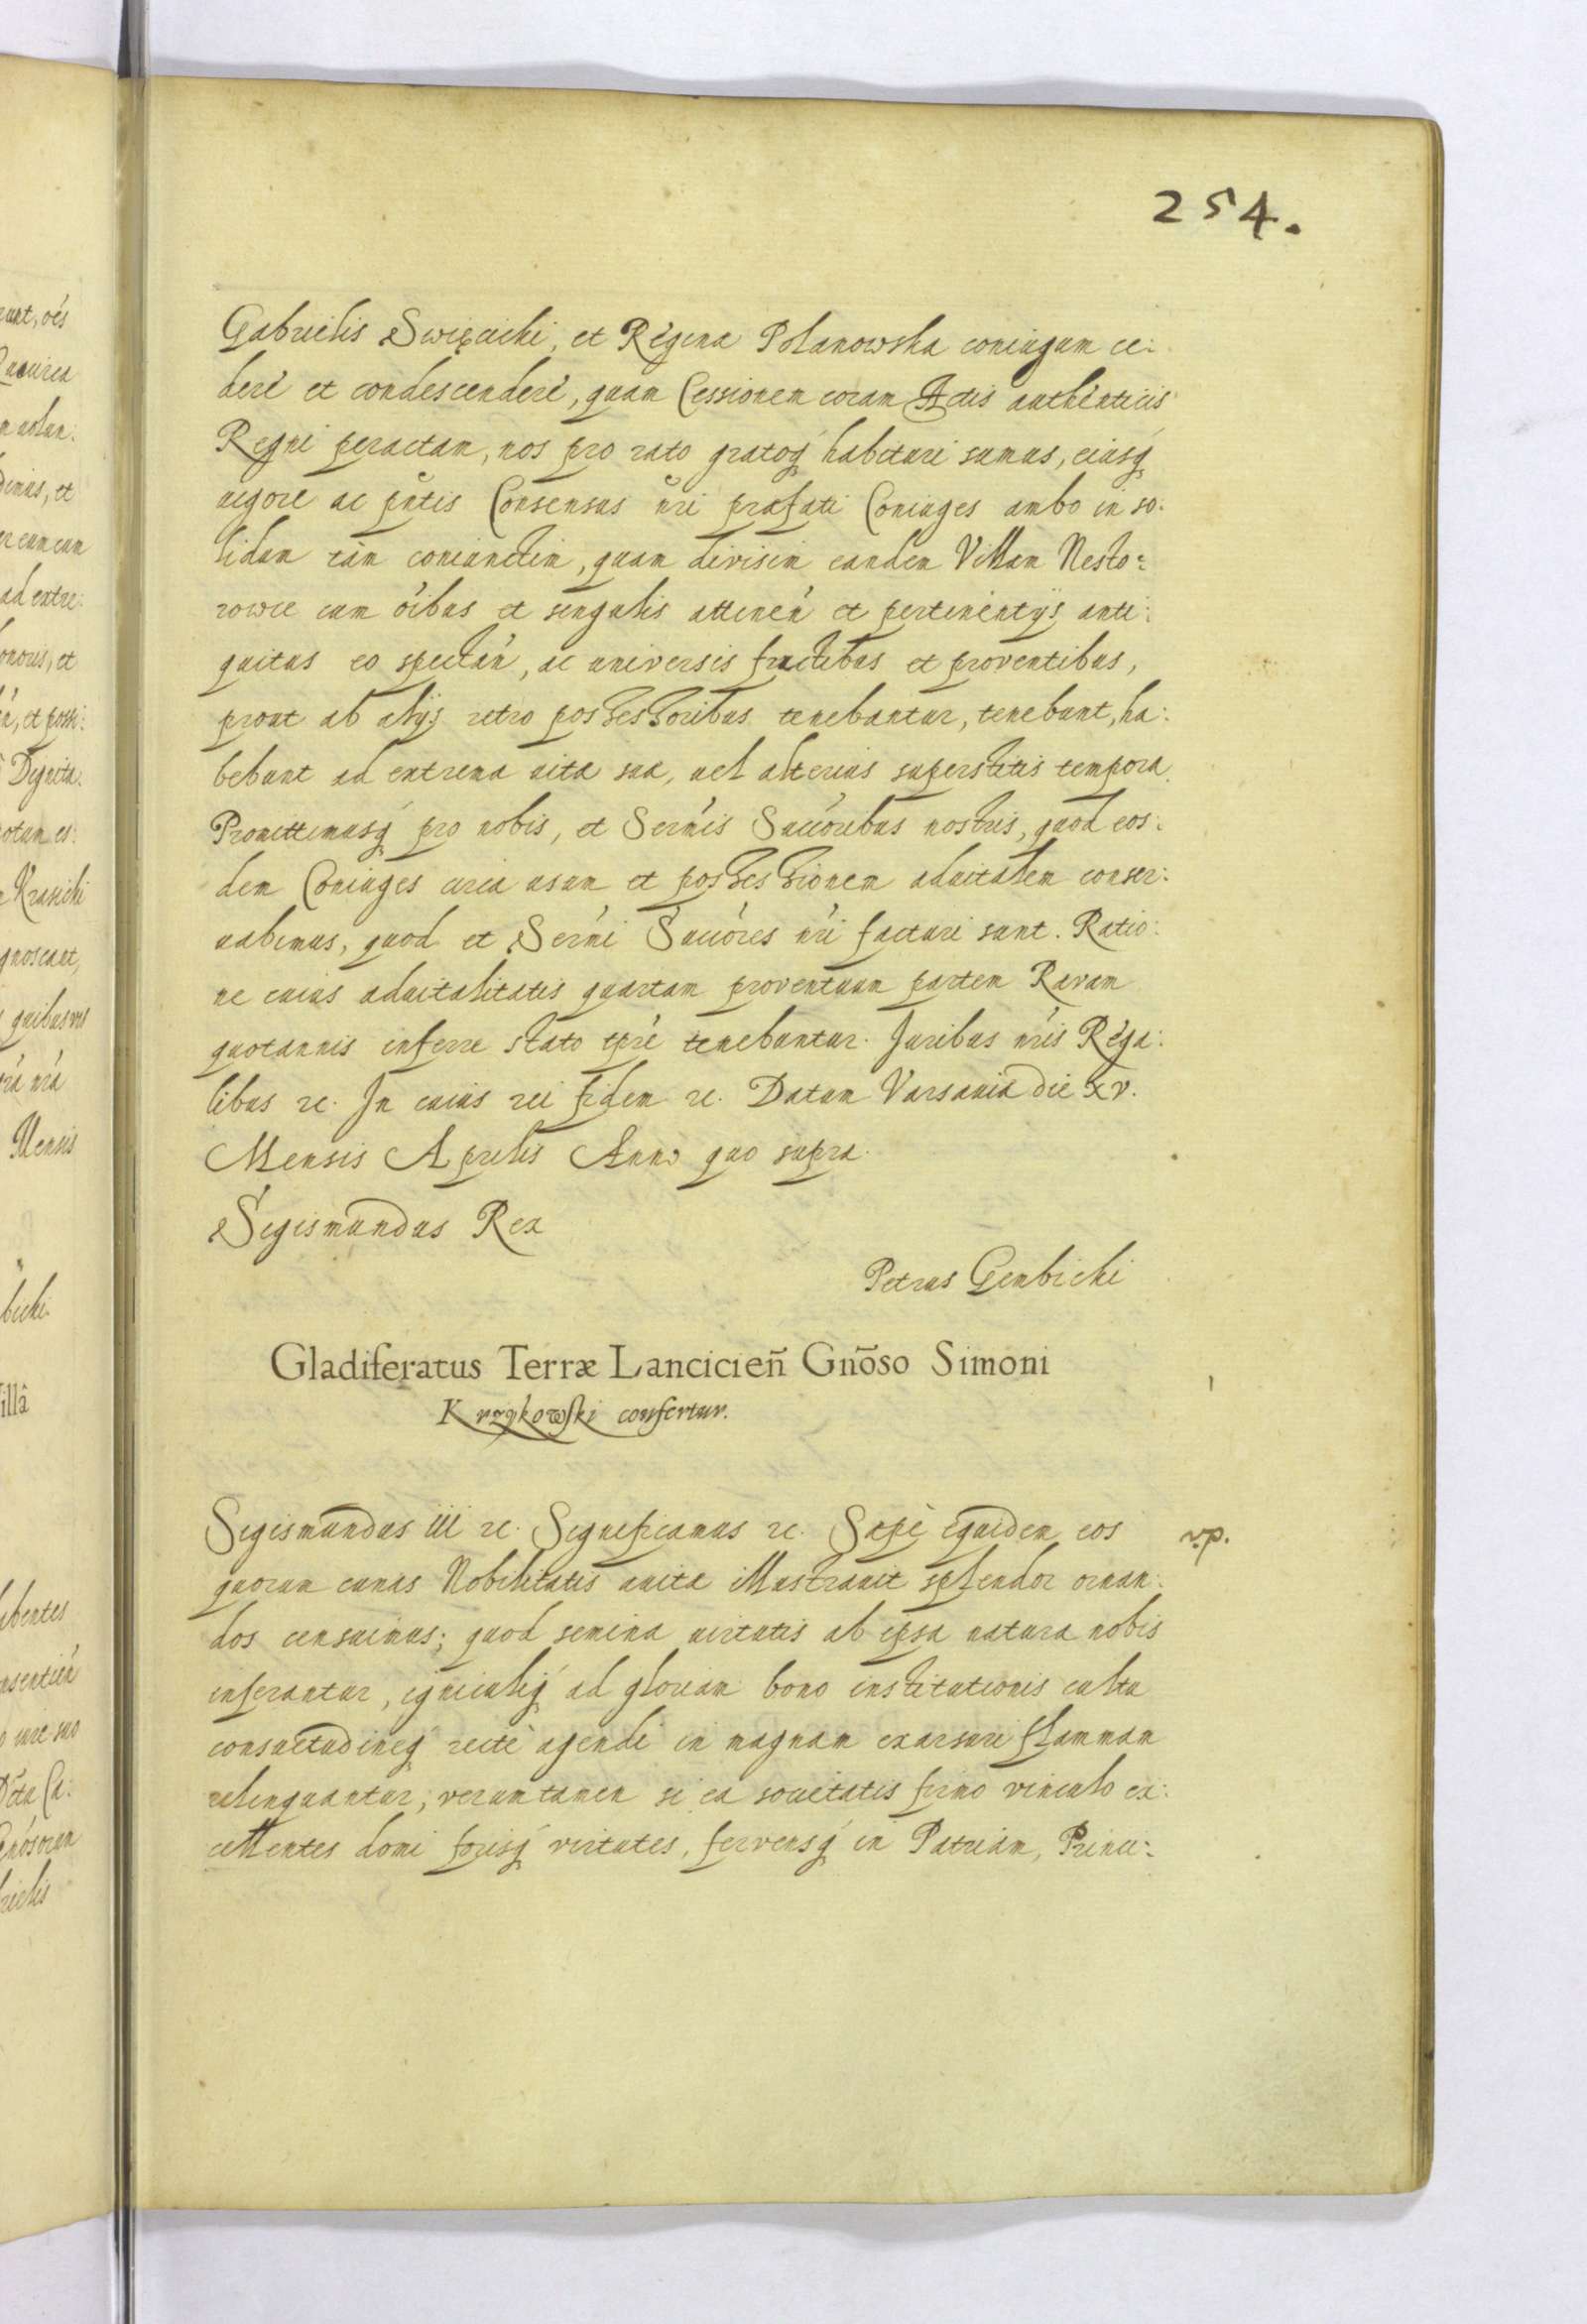 254.
Gabrielis Swięcicki, et Regina Polanowska coniugum ce:
dere et condescendere, quam Cessionem coram Actis authenticis
Regni peractam, nos pro rato gratoq́ habituri sumus, eiusq́
uigore ac pñtis Consensus ñri præfati Coniuges ambo in so:
lidum tàm coniunctim, quam divisim eandem Villam Nesto:
rowce cum óibus et singulis attineñ et pertinentijs anti:
quitus eo spectań, ac universis fructibus et proventibus,
prout ab alijs retro possessoribus tenebantur, tenebunt, ha:
bebunt ad extrema uitæ suæ, uel alterius superstitis tempora.
Promittimusq́ pro nobis, et Serńis Succóribus nostris, quod eos:
dem Coniuges circa usum et possessionem aduitalem conser:
uabimus, quod et Serńi Succóres ńri facturi sunt. Ratio:
ne cuius aduitalitatis quartam proventuum partem Ravam
quotannis inferre stato tp̃re tenebuntur. Juribus ńris Rega:
libus ꝛc. In cuius rei fidem ꝛc. Datum Varsauiæ die xv.
Mensis Aprilis Anno quo supra.
Sigismundus Rex
Petrus Gembicki
Gladiferatus Terræ Lancicień Gnõso Simoni
Krzykowski confertur.
Sigismundus III ꝛc. Significamus ꝛc. Sæpè equidem eos
v.p.
quorum cunas Nobilitatis auitæ illustrauit splendor ornan:
dos censuimus; quod semina uirtutis ab ipsa natura nobis
inserantur, igniculiq́ ad gloriam bono institutionis cultu
consuetudineq́ rectè agendi in magnam exarsuri flammam
relinquantur, veruntamen si ea societatis firmo vinculo ex:
cellentes domi forisq́ virtutes, fervensq́ in Patriam, Princi: